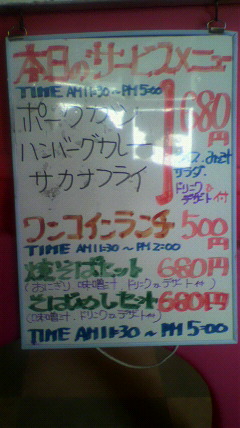 本日のサービスメニュー
TIME AM11:30～PM5:00
ポークカツ
ハンバーグカレー
サカナフライ
680円
ライス みそ汁
サラダ
ドリンクor
デザート付
ワンコインランチ 500円
TIME AM11:30～PM2:00
焼そばセット 680円
(おにぎり 味噌汁 ドリンクorデザート付)
そばめしセット 680円
(味噌汁、ドリンクorデザート付)
TIME AM11:30～PM5:00